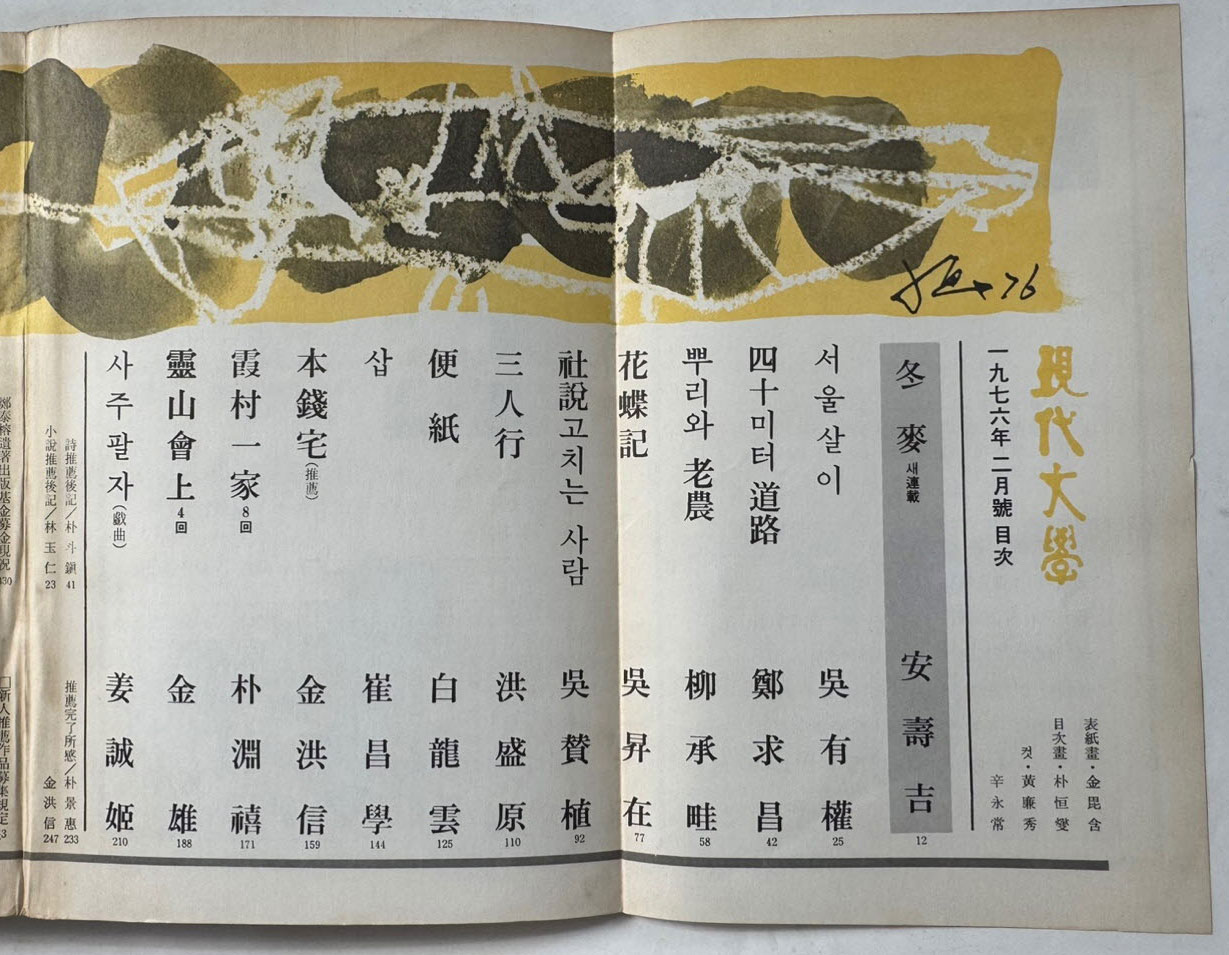 現代文學
一九七六年二月號 目次
表紙畫・金毘含
目次畫・朴恒燮
컷・黃廉秀
辛永常
冬麥 새連載 安壽吉 12
서울살이 吳有權 25
四十미터 道路 鄭求昌 42
뿌리와 老農 柳承畦 58
花蝶記 吳昇在 77
社說고치는 사람 吳贊植 92
三人行 洪盛原 110
便紙 白龍雲 125
삽 崔昌學 144
本錢宅(推薦) 金洪信 159
霞村一家 8回 朴淵禧 171
靈山會上 4回 金雄 188
사주팔자(戱曲) 姜誠姬 210
詩推薦後記／朴斗鎭 41
小說推薦後記／林玉仁 23
推薦完了所感／朴景惠 233
金洪信 247
鄭泰榕遺著出版基金募金現況 430
□新人推薦作品募集規定
76